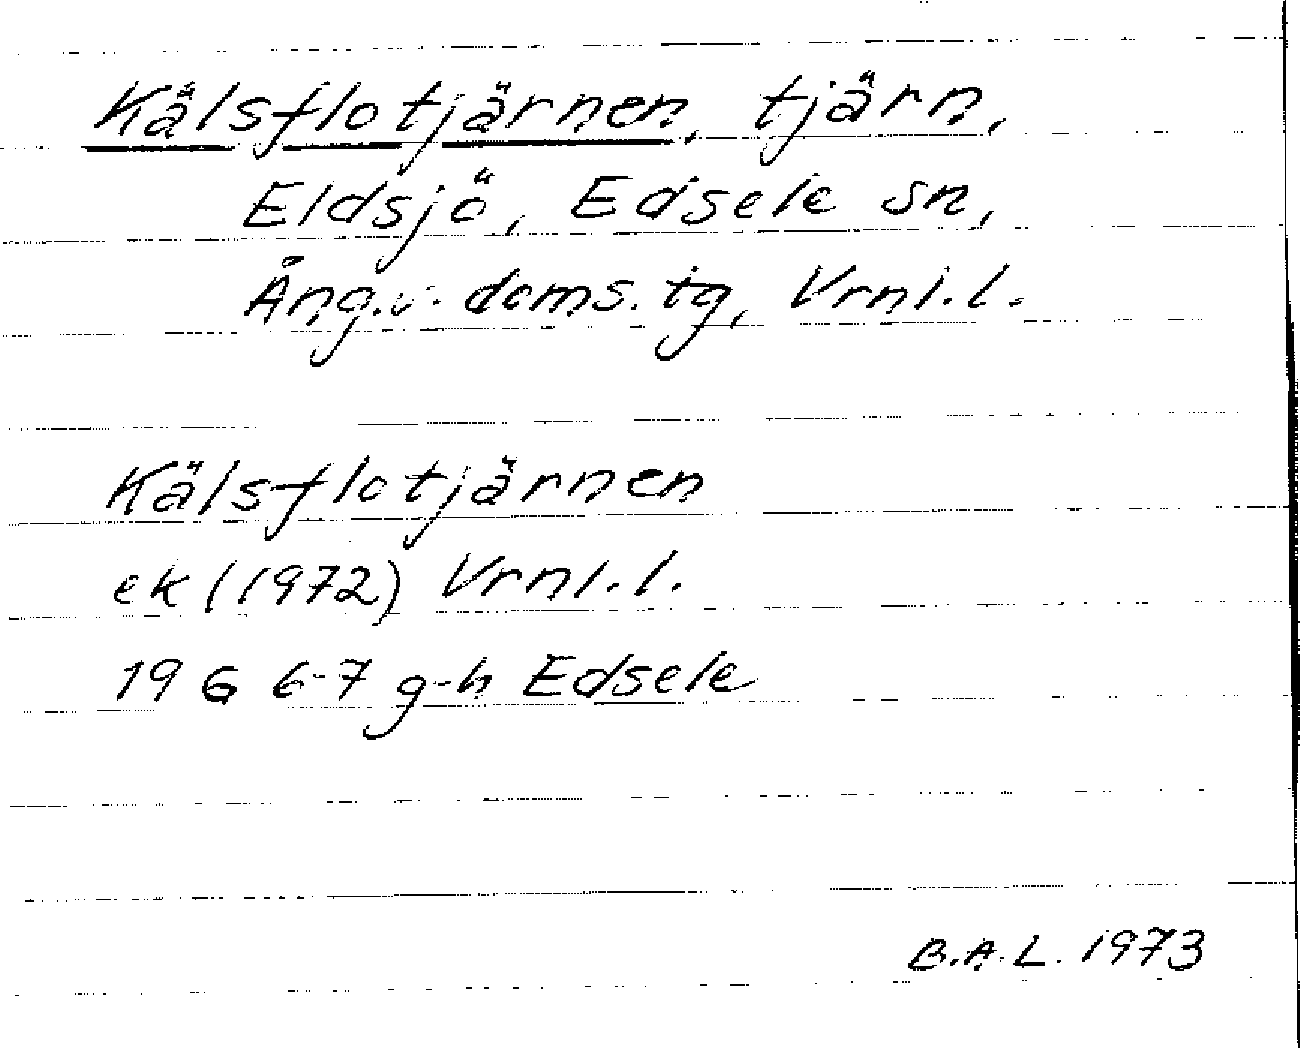 Kälsflotjärnen, tjärn,
Eldsjö, Edsele sn,
Ång.v. doms. tg, Vrnl.l.
Kälsflotjärnen
ek (1972) Vrnl.l.
19 G 6-7 g-h Edsele
B.A.L. 1973